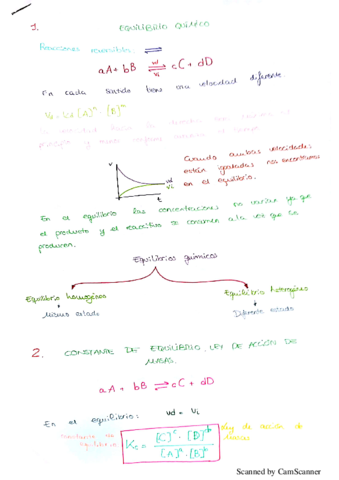 1. EQUILIBRIO QUÍMICO
Reacciones reversibles: ⇌
aA + bB ⇌ cC + dD
vd
vi
En cada sentido tiene una velocidad diferente.
Vd = Kd [A]
v
Cuando ambas velocidades
están igualadas nos encontramos
en el equilibrio.
vd
vi
t
En el equilibrio las concentraciones no varían ya que
el producto y el reactivo se consumen a la vez que se
producen.
Equilibrios químicos
Equilibrio homogéneo
Equilibrio heterogéneo
Mismo estado
Diferente estado
2. CONSTANTE DE EQUILIBRIO, LEY DE ACCIÓN DE
MASAS.
aA + bB ⇌ cC + dD
En el equilibrio: vd = vi
constante de
equilibrio
Kc = [C]^c · [D]^d / [A]^a · [B]^b
Ley de acción de
masas
Scanned by CamScanner